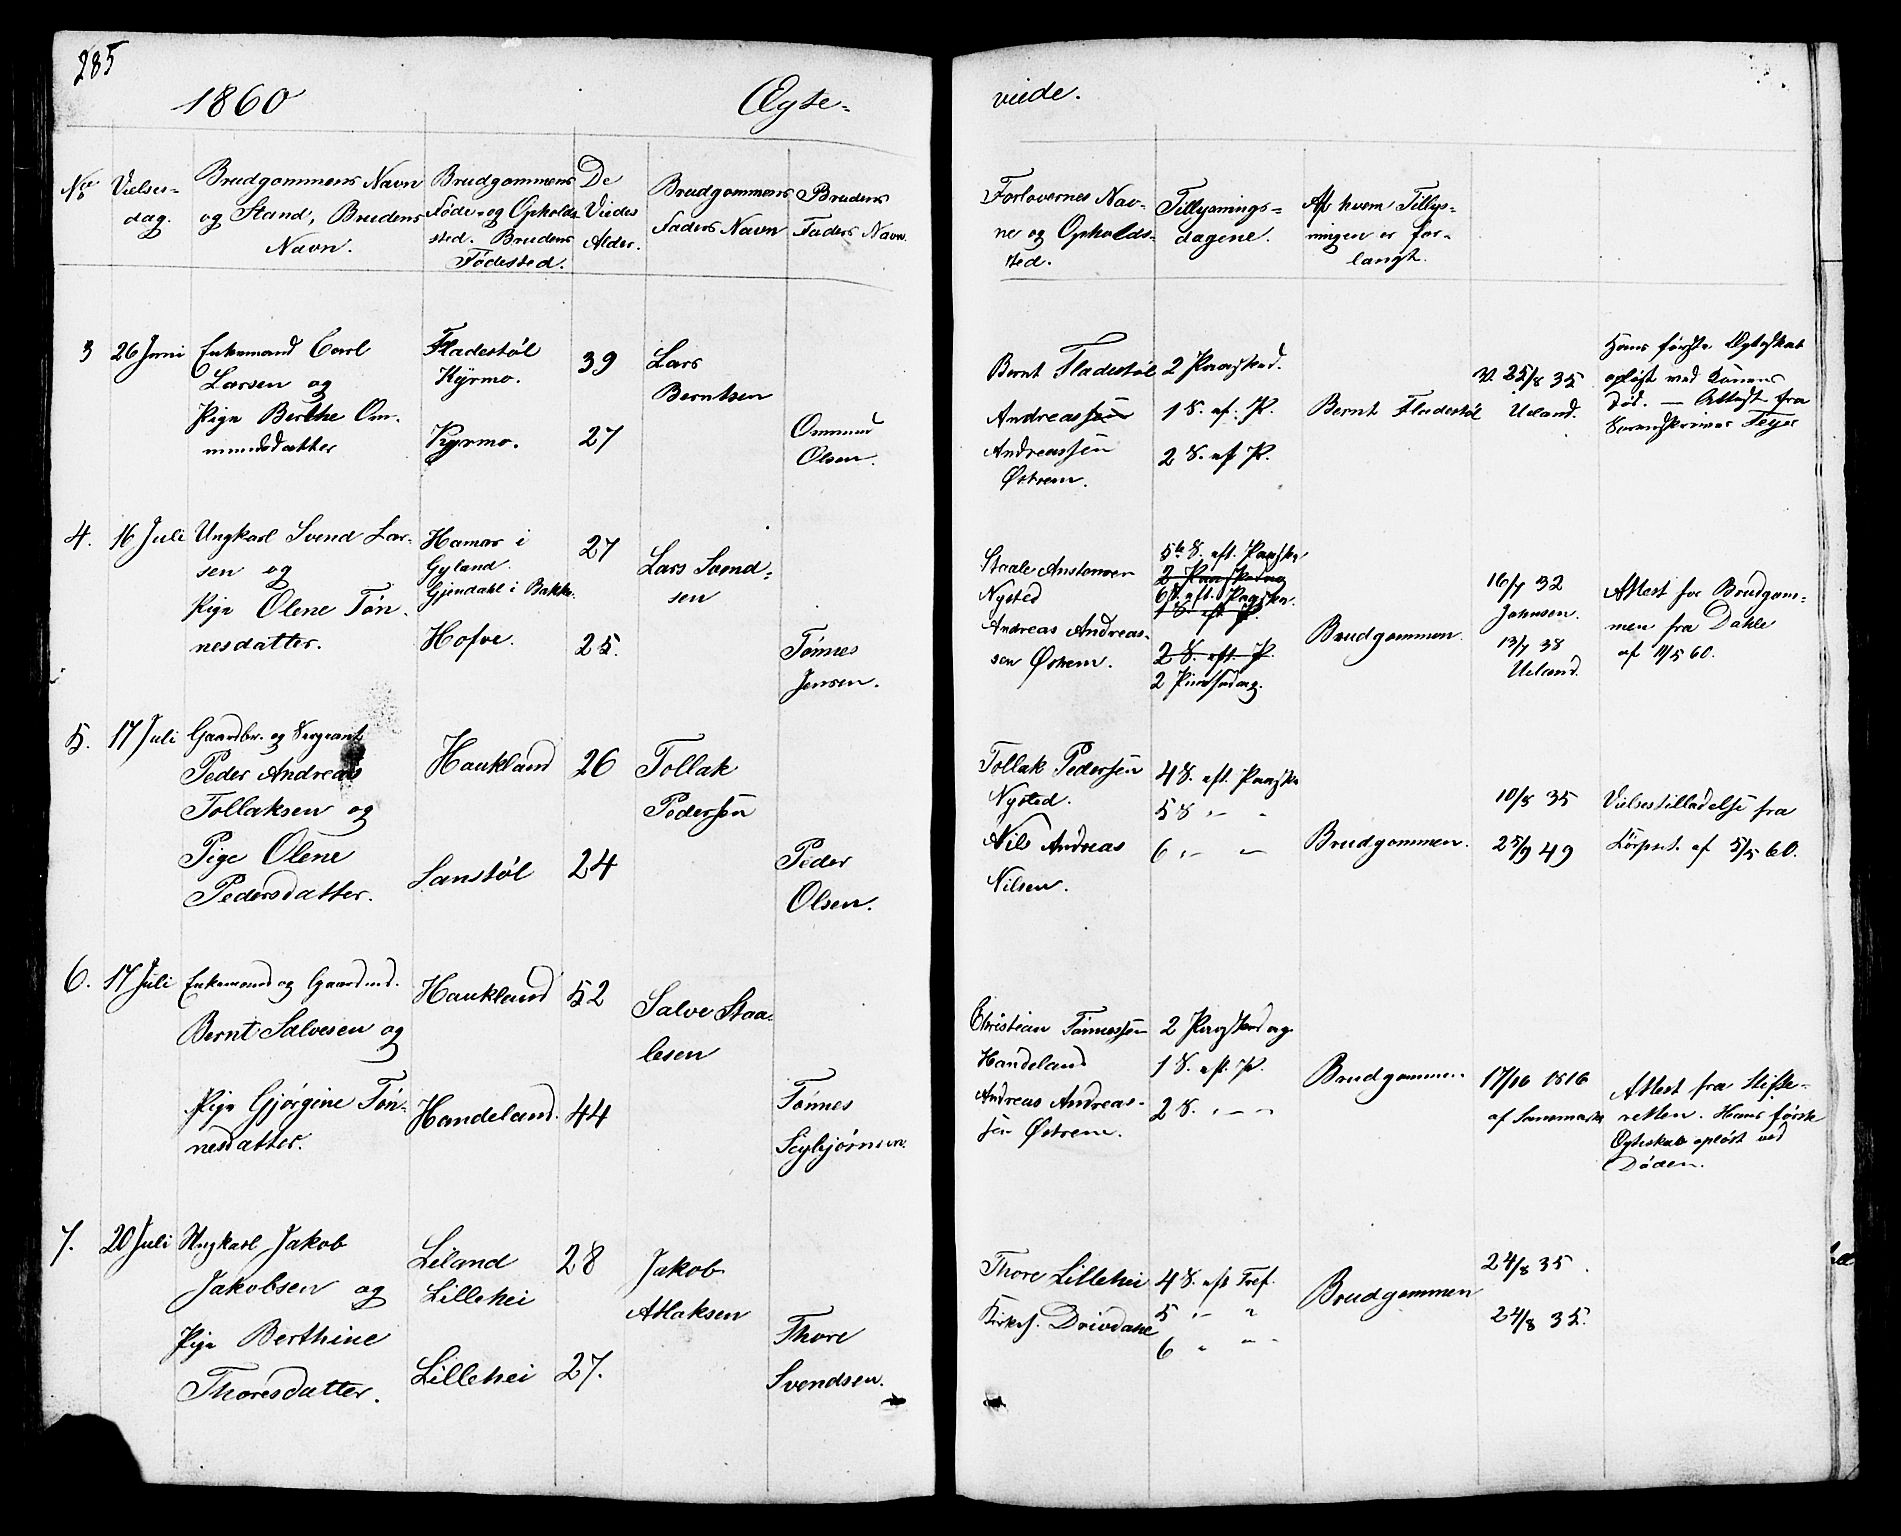 285
1860 Ægte-
viede.
No
Vielses-
dag.
Brudgommens Navn
og Stand, Brudens
Navn.
Brudgommens
Føde- og Opholds
sted. Brudens
Fødested.
De
Viedes
Alder.
Brudgommens
Faders Navn
Brudens
Faders Navn.
Forlovernes Nav-
ne og Opholds-
sted.
Tillysnings-
dagene.
Af hvem Tillys-
ningen er for-
langt.
3
26 Juni
Enkemand Carl
Larsen og
Pige Berthe Om-
mundsdatter
Fladestøl
Kyrmo.
Kyrmo.
39
27
Lars
Berntsen
Ommund
Olsen.
Bernt Fladestøl
Andreassen
Andreassen
Østrem.
2 Paasked.
1 S. ef. P.
2 S. ef P.
Bernt Fladestøl
V. 25/8 35
Ueland.
Hans første Ægteskab
opløst ved Konens
Død. — Attest fra
Sorenskriver Feyer
4.
16 Juli
Ungkarl Svend Lar-
sen og
Pige Olene Tøn-
nesdatter.
Hamar i
Gyland.
Gjendahl i Bakke.
Hofve.
27
25.
Lars Svend-
sen
Tønnes
Jensen.
Staale Anstensen
Nysted
Andreas Andreas-
sen Østrem.
5te S. eft. Paaske
2 Paaskedag
6 S. eft. Paasken.
1 S. eft P.
2 S. eft. P.
2 Pinsedag.
Brudgommen.
16/7 32
Johnsen.
13/7 38
Ueland.
Attest for Brudgom-
men fra Dahle
af 11/5 60.
5.
17 Juli
Gaardbr. og Sergeant
Peder Andreas
Tollaksen og
Pige Olene
Pedersdatter.
Haukland
Sanstøl
26
24
Tollak
Pedersen
Peder
Olsen.
Tollak Pedersen
Nysted.
Nils Andreas
Nilsen.
4 S. eft. Paaske
5 S. — "
6 " — —
Brudgommen.
10/8 35
25/9 49
Vielsestilladelse fra
Korpset af 5/5 60.
6.
17 Juli
Enkemand og Gaardmd.
Bernt Salvesen og
Pige Gjørgine Tøn-
nesdatter.
Haukland
Handeland.
52
44
Salve Staa-
lesen
Tønnes
Seybjørnsen.
Christian Tønnessen
Handeland
Andreas Andreas-
sen Østrem.
2 Paaskedag
1 S. eft. P.
2 S. " — "
Brudgommen.
17/10 1816
Attest fra Skifte-
retten. Hans første
Ægteskab opløst ved
Døden.
7.
20 Juli
Ungkarl Jakob
Jakobsen og
Pige Berthine
Thoresdatter.
Liland
Lillehei
Lillehei
28
27.
Jakob
Atlaksen
Thore
Svendsen.
Thore Lillehei
Kirkes. Drivdane
4 S. eft Tref.
5 " — "
6 " — "
Brudgommen
24/8 35.
24/8 35.